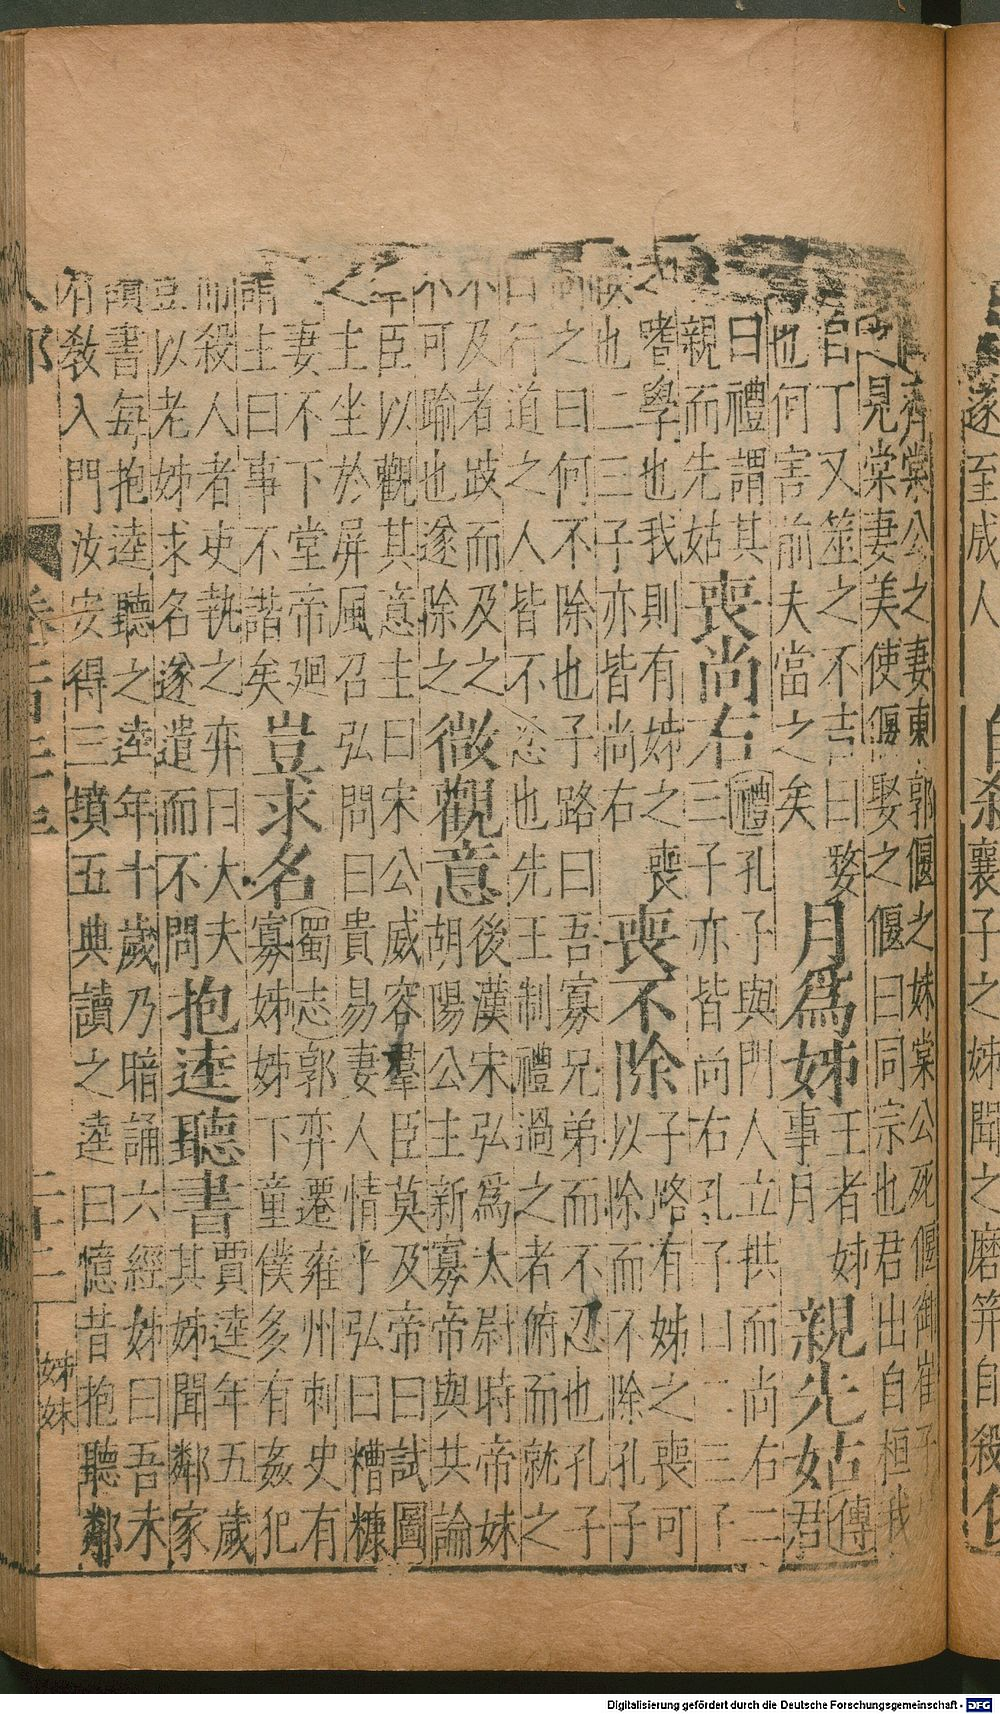 遂至成人
自殺襄子之姊聞之磨笄自殺
齊棠公之妻東郭偃之妹棠公死偃御崔子
見棠妻美使偃娶之偃曰同宗也君出自桓我
自丁又筮之不吉曰嫠
也何害前夫當之矣
月爲姊
王者姊
事月
親先姑
傳
君
曰禮謂其
親而先姑
喪尚右
禮孔子與門人立拱而尚右二
三子亦皆尚右孔子曰二三子
之嗜學也我則有姊之喪
故也二三子亦皆尚右
喪不除
子路有姊之喪可
以除而不除孔子
之曰何不除也子路曰吾寡兄弟而不忍也孔子
曰行道之人皆不忍也先王制禮過之者俯而就之
不及者跂而及之
不可踰也遂除之
微觀意
後漢宋弘爲太尉時帝妹
胡陽公主新寡帝與共論
臣以觀其意主曰宋公威容羣臣莫及帝曰試圖
之主坐於屏風召弘問曰貴易妻人情乎弘曰糟糠
妻不下堂帝廻
謂主曰事不諧矣
豈求名
蜀志郭弈遷雍州刺史有
寡姊姊下童僕多有姦犯
而殺人者吏執之弈曰大夫
豈以老姊求名遂遣而不問
抱逵聽書
賈逵年五歲
其姊聞鄰家
讀書每抱逵聽之逵年十歲乃暗誦六經姊曰吾未
有教入門汝安得三墳五典讀之逵曰憶昔抱聽鄰
二十二
姊妹
Digitalisierung gefördert durch die Deutsche Forschungsgemeinschaft - DFG